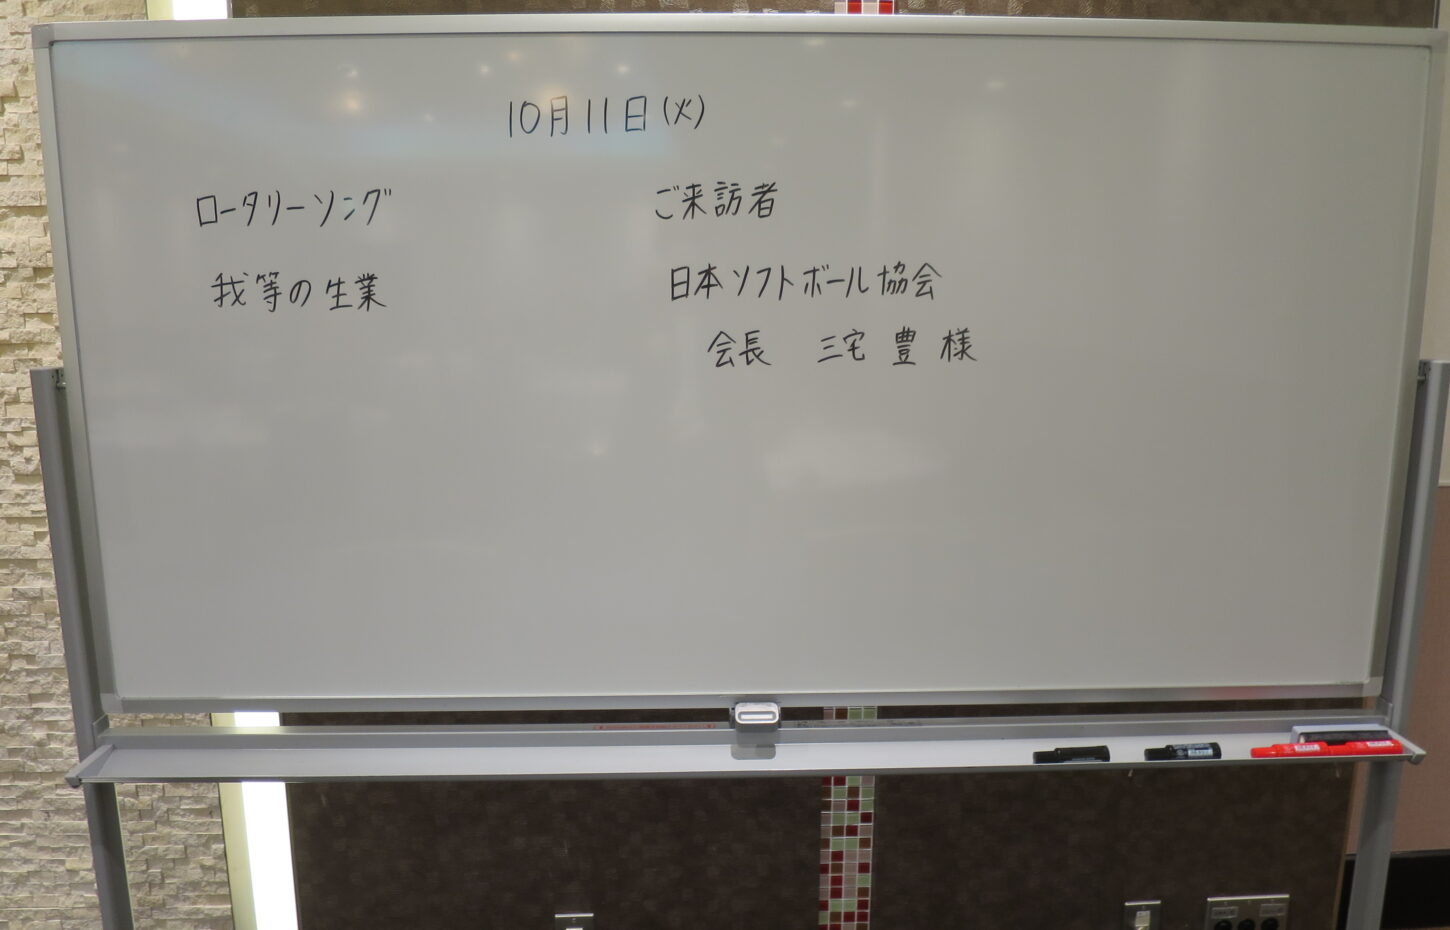 10月11日(火)
ロータリーソング
我等の生業
ご来訪者
日本ソフトボール協会
会長 三宅 豊 様